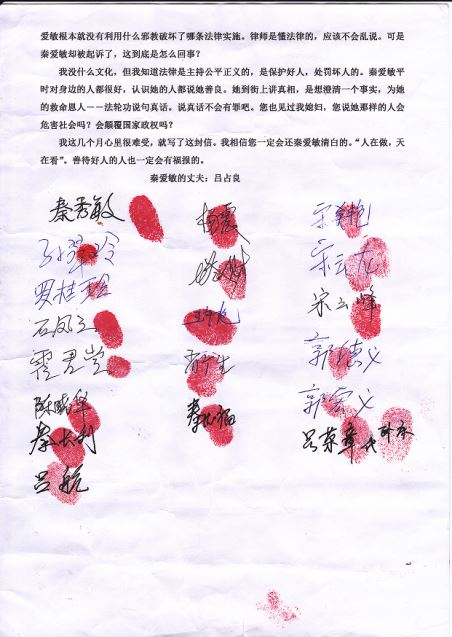 爱敏根本就没有利用什么邪教破坏了哪条法律实施。律师是懂法律的，应该不会乱说。可是
秦爱敏却被起诉了，这到底是怎么回事？
我没什么文化，但我知道法律是主持公平正义的，是保护好人，处罚坏人的。秦爱敏平
时对身边的人都很好，认识她的人都说她善良。她到街上讲真相，是想澄清一个事实，为她
的救命恩人－－法轮功说句真话。说真话不会有罪吧。您也见过我媳妇，您说她那样的人会
危害社会吗？会颠覆国家政权吗？
我这几个月心里很难受，就写了这封信。我相信您一定会还秦爱敏清白的。“人在做，天
在看”。善待好人的人也一定会有福报的。
秦爱敏的丈夫：吕占良
秦秀敏 杨震
宋云龙
罗桂珍 宋云峰
石凤兰
郭德义
陈晓华 秦志福
秦长利
吕航